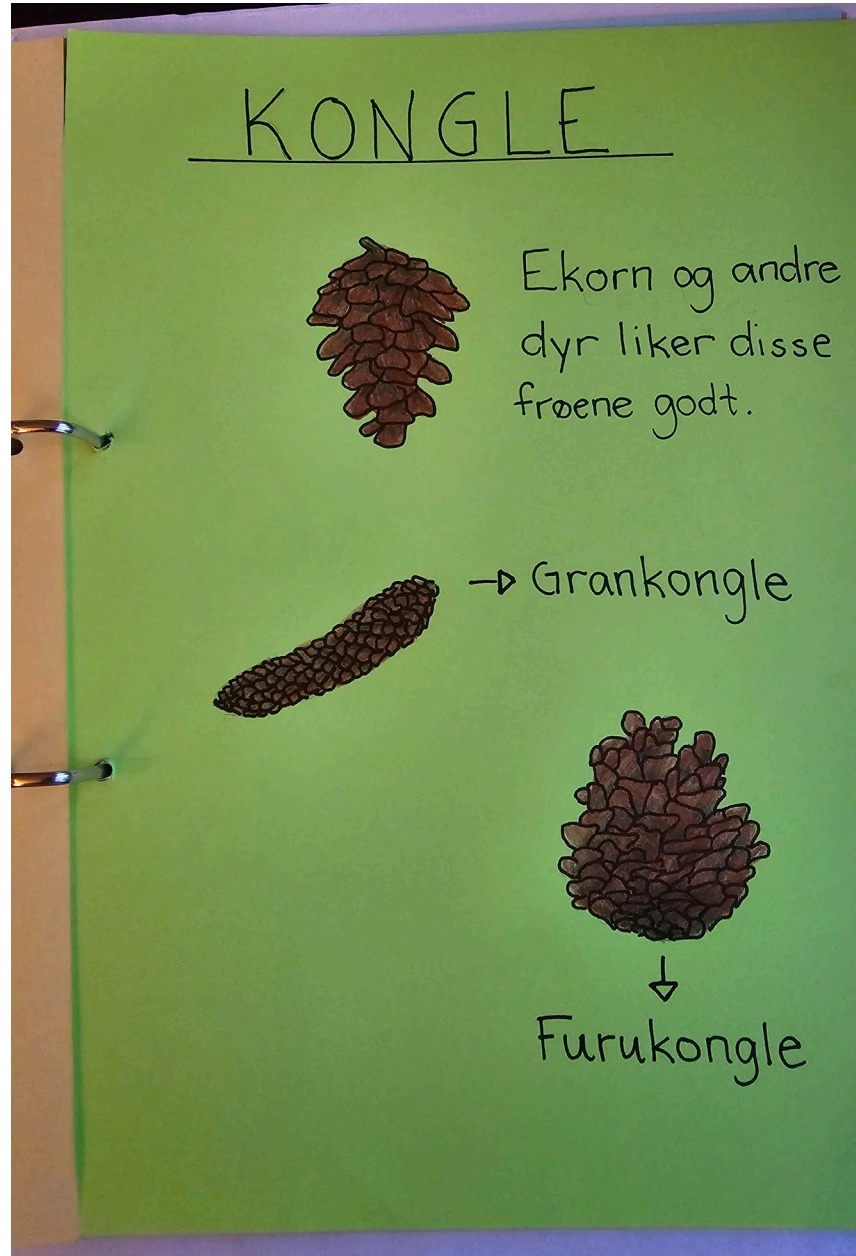 KONGLE
Ekorn og andre
dyr liker disse
frøene godt.
Grankongle
Furukongle